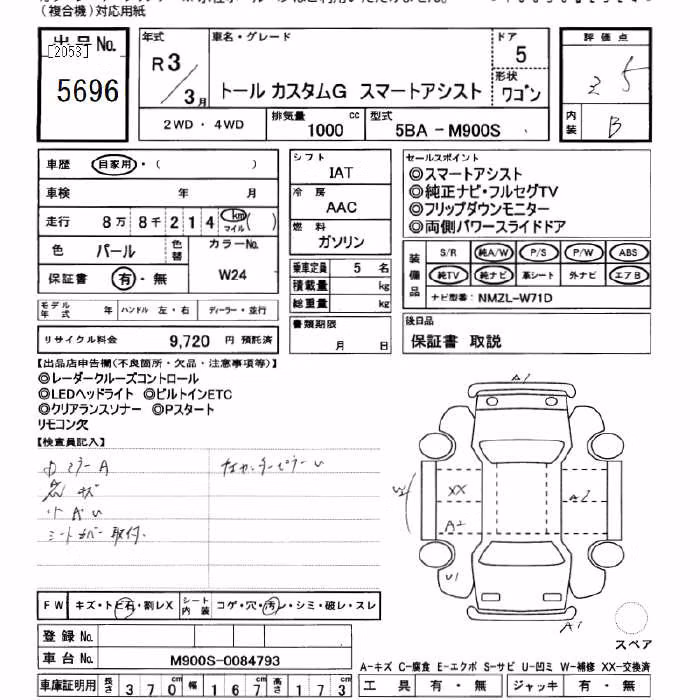 (複合機)対応用紙
出品No.
[2053]
5696
年式
R3
3月
車名・グレード
トール カスタムG スマートアシスト
ドア
5
形状
ワゴン
2WD・4WD
排気量 1000 cc
型式 5BA-M900S
評価点
3.5
内装
B
車歴 自家用・( )
車検 年 月
走行 8万8千214 km マイル ( )
色 パール 色替
カラーNo. W24
保証書 有・無
モデル年式 年 ハンドル 左・右 ディーラー・並行
リサイクル料金 9,720 円 預託済
シフト
IAT
冷房
AAC
燃料
ガソリン
乗車定員 5 名
積載量 kg
総重量 kg
書類期限
月 日
セールスポイント
◎スマートアシスト
◎純正ナビ・フルセグTV
◎フリップダウンモニター
◎両側パワースライドドア
装備品
S/R 純A/W P/S P/W ABS
純TV 純ナビ 革シート 外ナビ エアB
ナビ型番: NMZL-W71D
後日品
保証書 取説
【出品店申告欄(不良箇所・欠品・注意事項等)】
◎レーダークルーズコントロール
◎LEDヘッドライト ◎ビルトインETC
◎クリアランスソナー ◎Pスタート
リモコン欠
【検査員記入】
シートカバー取付.
A1
XX
A2
A2
U1
A1
スペア
FW キズ・トビ石・割レX
シート内装 コゲ・穴・汚レ・シミ・破レ・スレ
登録No.
車台No. M900S-0084793
A-キズ C-腐食 E-エクボ S-サビ U-凹ミ W-補修 XX-交換済
車庫証明用 長さ 370 cm 幅 167 cm 高さ 173 cm
工具 有・無 ジャッキ 有・無